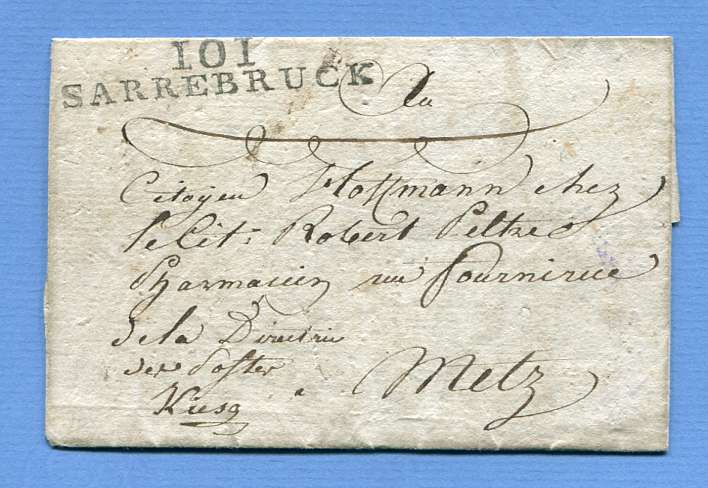 101
SARREBRUCK
Au
Citoyen Hoffmann chez
le Cit: Robert Peltre
Pharmacien rue fournirue
De la Direction
des Postes
à Metz